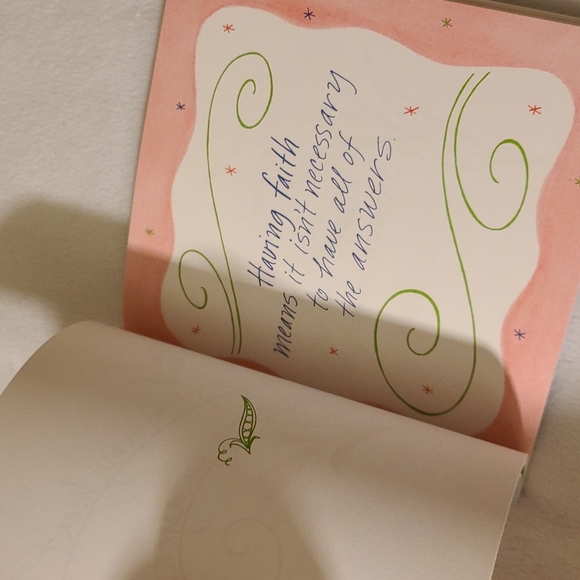 Having faith
means it isn't necessary
to have all of
the answers.